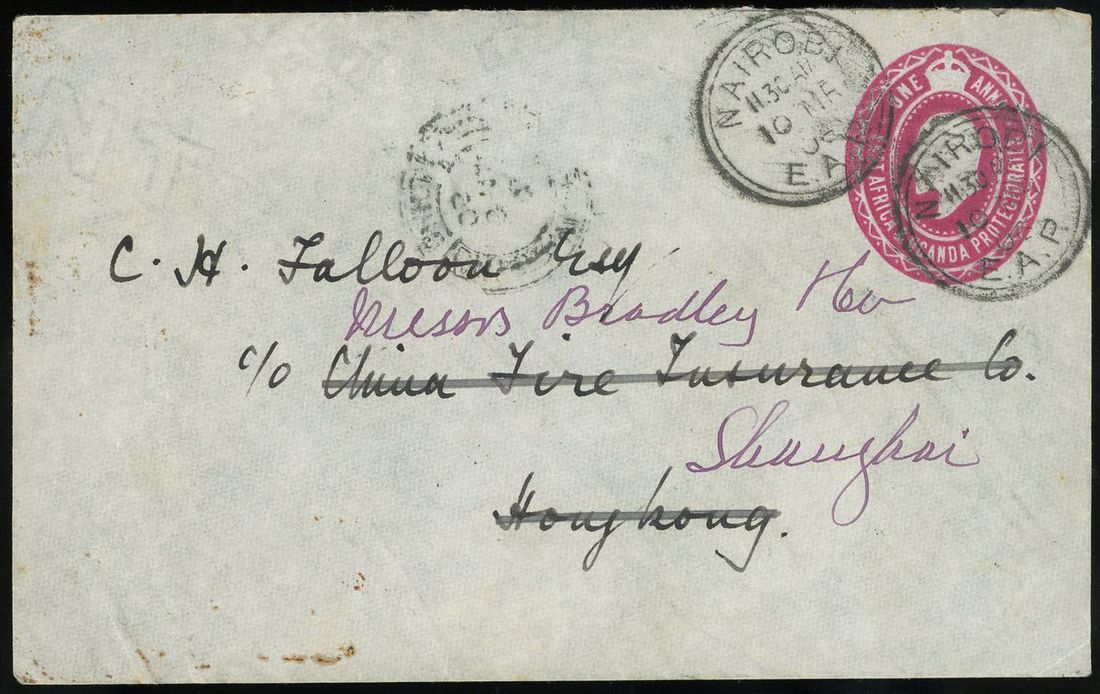 NAIROBI
11.30 AM
10 MR
E.A.P.
ONE ANNA
AFRICA UGANDA PROTECTORATES
NAIROBI
11.30
10
E.A.P.
C. H. Falloon Esq
Messrs Bradley & Co
c/o China Fire Insurance Co.
Shanghai
Hongkong.